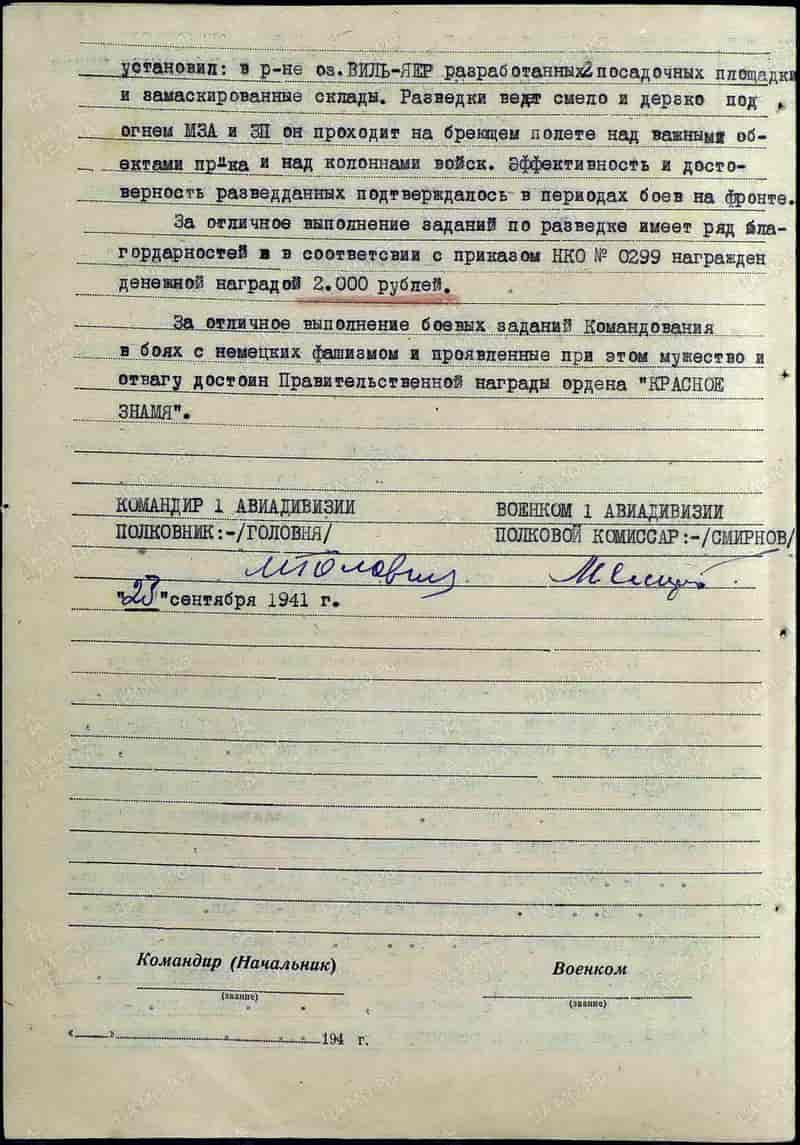 установил: в р-не оз.ВИЛЬ-ЯЕР разработанных 2 посадочных площадки
и замаскированные склады. Разведки ведет смело и дерзко под
огнем МЗА и ЗП он проходит на бреющем полете над важными об-
ектами пр-ка и над колоннами войск. Эффективность и досто-
верность разведданных подтверждалось в периодах боев на фронте.
За отличное выполнение заданий по разведке имеет ряд бла-
гордарностей и в соответсвии с приказом НКО № 0299 награжден
денежной наградой 2.000 рублей.
За отличное выполнение боевых заданий Командования
в боях с немецких фашизмом и проявленные при этом мужество и
отвагу достоин Правительственной награды ордена "КРАСНОЕ
ЗНАМЯ".
КОМАНДИР 1 АВИАДИВИЗИИ
ПОЛКОВНИК:-/ГОЛОВНЯ/
ВОЕНКОМ 1 АВИАДИВИЗИИ
ПОЛКОВОЙ КОМИССАР:-/СМИРНОВ/
"23"сентября 1941 г.
Командир (Начальник)
(звание)
Военком
(звание)
« » 194 г.